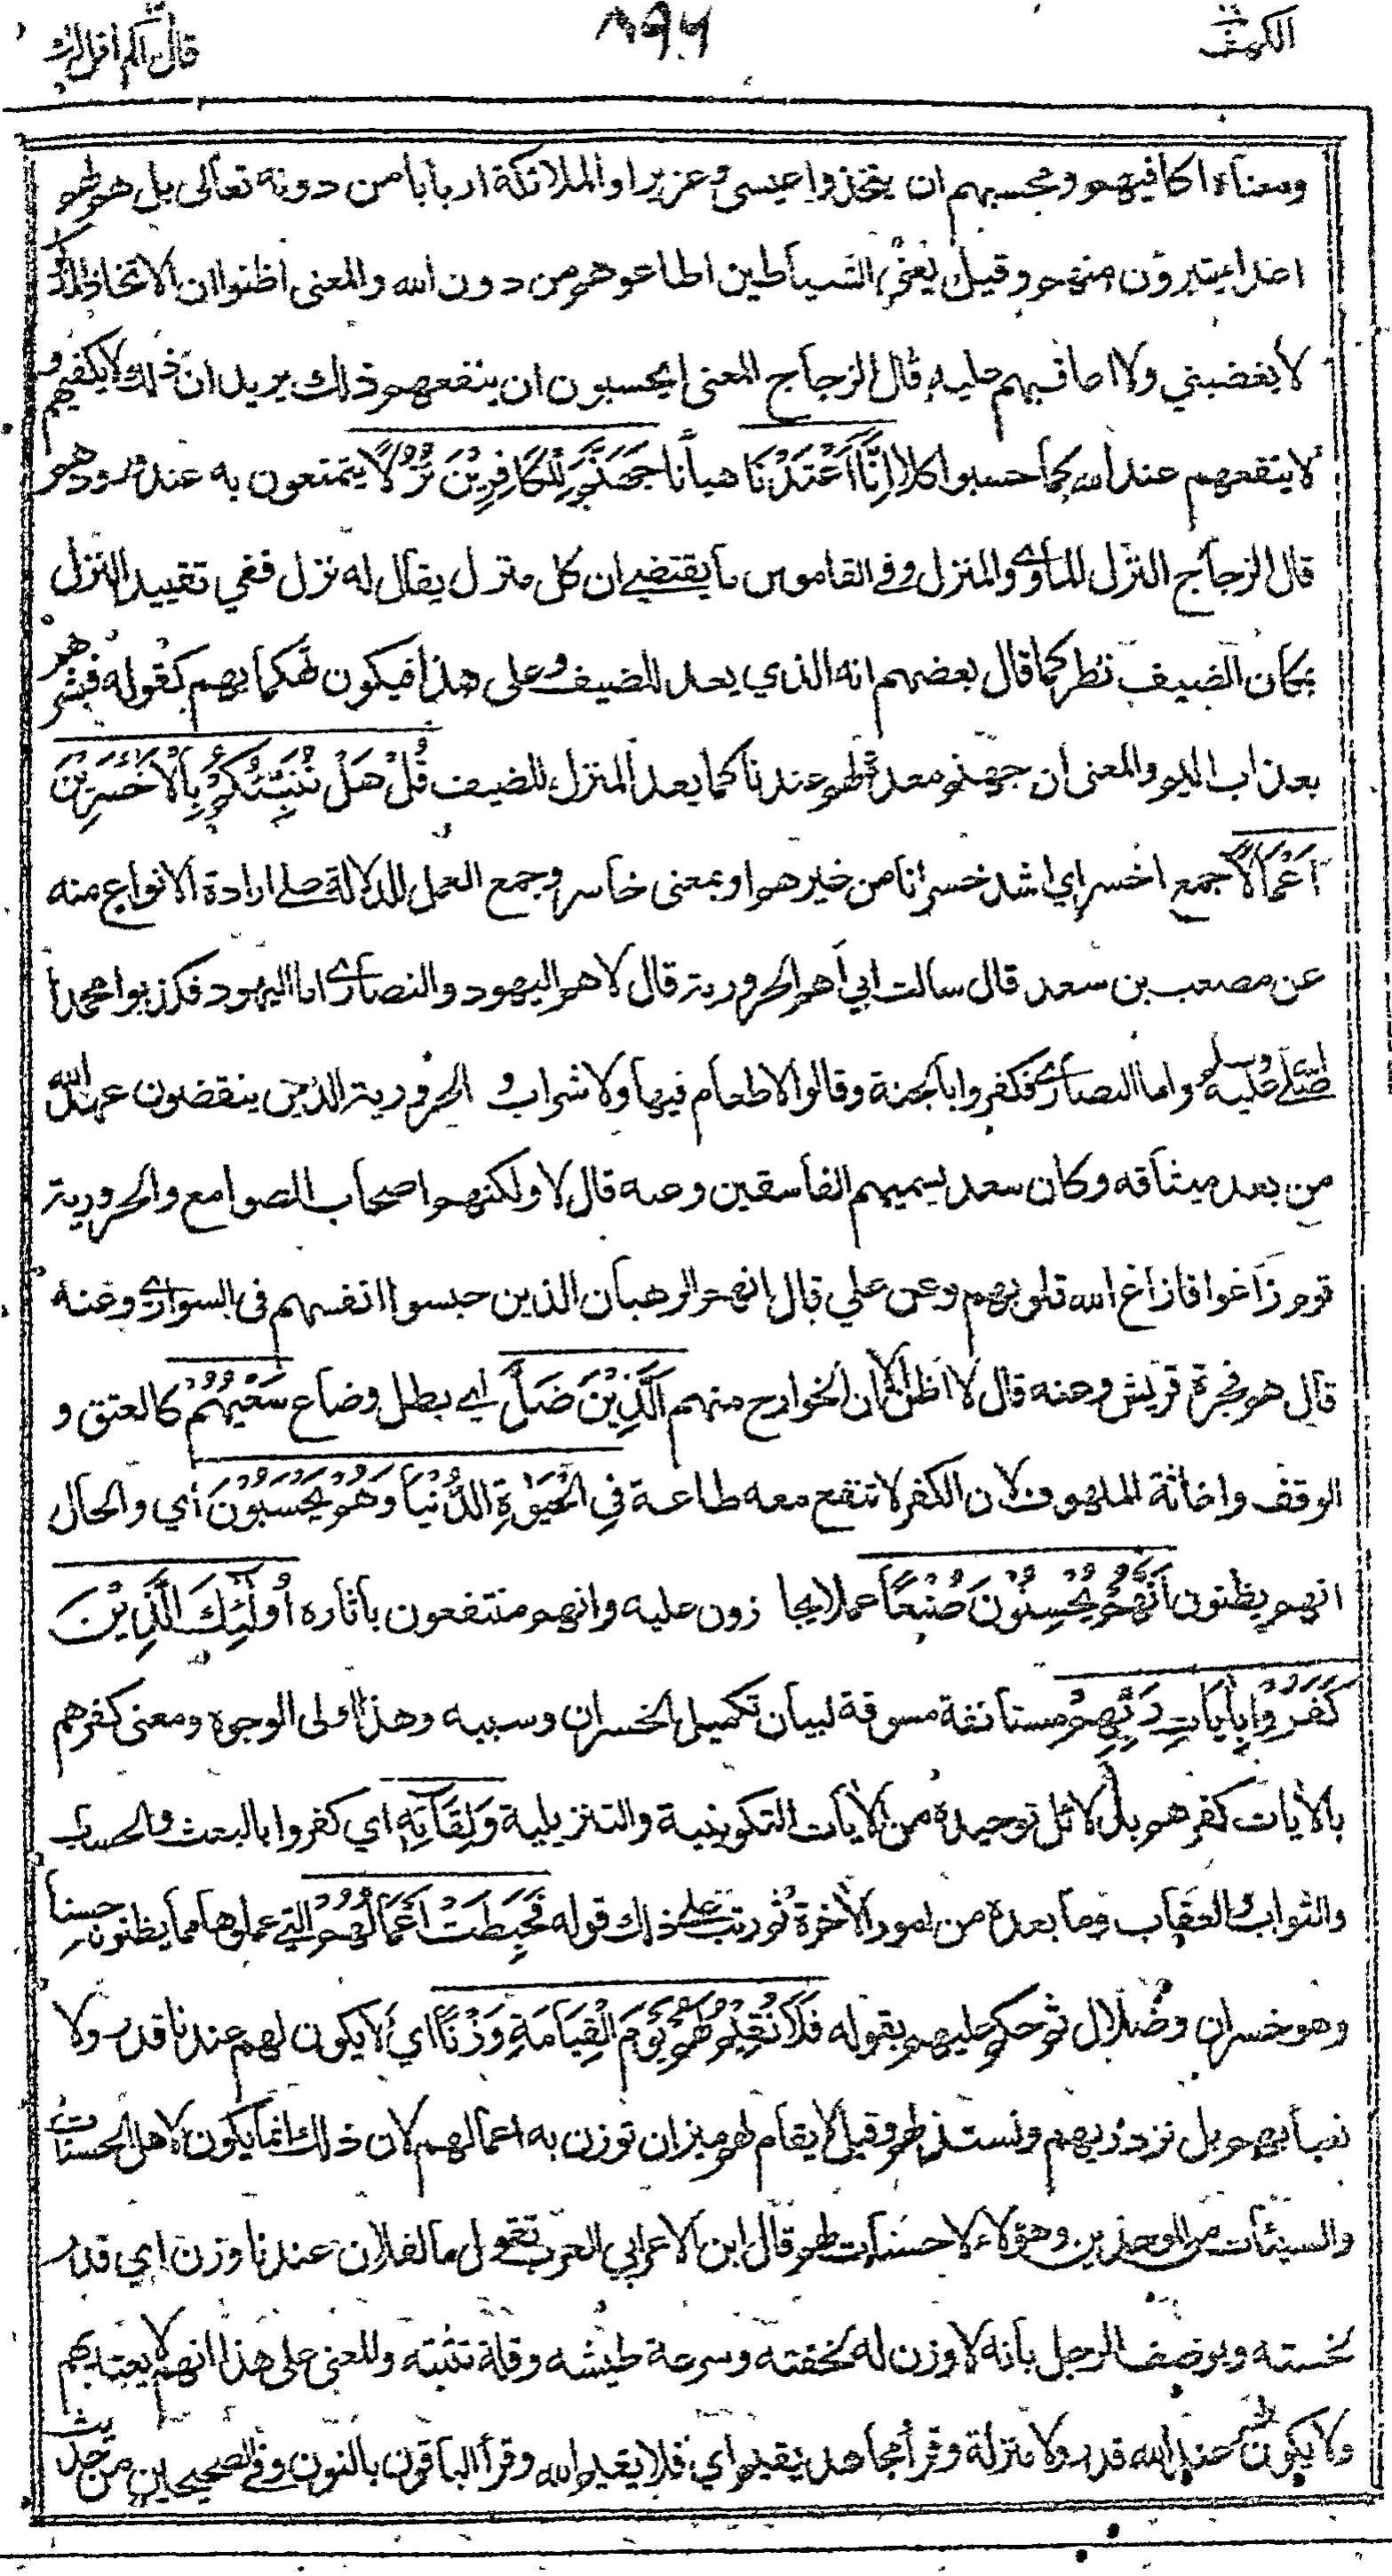 الكهف ٨٩٦ قال الم اقل لك
ومعناه اكافيهم ومحسبهم ان يتخذوا عيسى وعزيرا والملائكة اربابا من دونه تعالى بل هو لهم
اعداء يتبرؤن منهم وقيل يعني الشياطين اطاعوهم من دون الله والمعنى اظنوا ان الاتخاذ المذكور
لا يغضبني ولا اعاقبهم عليه قال الزجاج المعنى ايحسبون ان ينفعهم ذلك يريد ان ذلك لا يكفيهم و
لا ينفعهم عند الله كما حسبوا كلا اِنَّا اَعْتَدْنَا هيأنا جَهَنَّمَ لِلْكَافِرِيْنَ نُزُلًا يتمتعون به عند ورودهم
قال الزجاج النزل المأوى والمنزل وفي القاموس ما يقتضي ان كل منزل يقال له نزل ففي تقييد النزل
بمكان الضيف نظر كما قال بعضهم انه الذي يعد للضيف وعلى هذا فيكون تهكما بهم كقوله فبشرهم
بعذاب اليم والمعنى ان جهنم معدة لهم عندنا كما يعد المنزل للضيف قُلْ هَلْ نُنَبِّئُكُمْ بِالْاَخْسَرِيْنَ
اَعْمَالًا جمع اخسر اي اشد خسرانا من غيرهم او بمعنى خاسر وجمع العمل للدلالة على ارادة الانواع منه
عن مصعب بن سعد قال سالت ابي أهم الحرورية قال لا هم اليهود والنصارى اما اليهود فكذبوا محمدا
صلى الله عليه وسلم واما النصارى فكفروا بالجنة وقالوا لا طعام فيها ولا شراب و الحرورية الذين ينقضون عهد الله
من بعد ميثاقه وكان سعد يسميهم الفاسقين وعنه قال لا ولكنهم اصحاب الصوامع والحرورية
قوم زاغوا فازاغ الله قلوبهم وعن علي قال انهم الرهبان الذين حبسوا انفسهم في السواري وعنه
قال هم فجرة قريش وعنه قال لا اظن الا ان الخوارج منهم الَّذِيْنَ ضَلَّ اي بطل وضاع سَعْيُهُمْ كالعتق و
الوقف واغاثة الملهوف لان الكفر لا تنفع معه طاعة فِي الْحَيٰوةِ الدُّنْيَا وَهُمْ يَحْسَبُوْنَ أي والحال
انهم يظنون اَنَّهُمْ يُحْسِنُوْنَ صُنْعًا عملا يجا زون عليه وانهم منتفعون بآثاره اُولٰئِكَ الَّذِيْنَ
كَفَرُوْا بِاٰيَاتِ رَبِّهِمْ مستأنفة مسوقة لبيان تكميل الخسران وسببه وهذا اولى الوجوه ومعنى كفرهم
بالآيات كفرهم بدلائل توحيده من الآيات التكوينية والتنزيلية وَلِقَآئِهِ اي كفروا بالبعث والحساب
والثواب والعقاب وما بعده من امور الآخرة ثم رتب على ذلك قوله فَحَبِطَتْ اَعْمَالُهُمْ التي عملوها مما يظنونه حسنا
وهو خسران وضلال ثم حكم عليهم بقوله فَلَا نُقِيْمُ لَهُمْ يَوْمَ الْقِيَامَةِ وَزْنًا اي لا يكون لهم عندنا قدر ولا
نعبأ بهم بل نزدريهم ونستذلهم وقيل لا يقام لهم ميزان توزن به اعمالهم لان ذلك انما يكون لاهل الحسنات
والسيئات من الموحدين وهؤلاء لا حسنات لهم قال ابن الاعرابي العرب تقول ما لفلان عندنا وزن اي قدر
لخسته ويوصف الرجل بأنه لا وزن له لخفته وسرعة طيشه وقلة تثبته والمعنى على هذا انهم لا يعتد بهم
ولا يكون لهم عند الله قدر ولا منزلة وقرأ مجاهد يقيم اي فلا يقيم الله وقرأ الباقون بالنون وفي الصحيحين من حديث